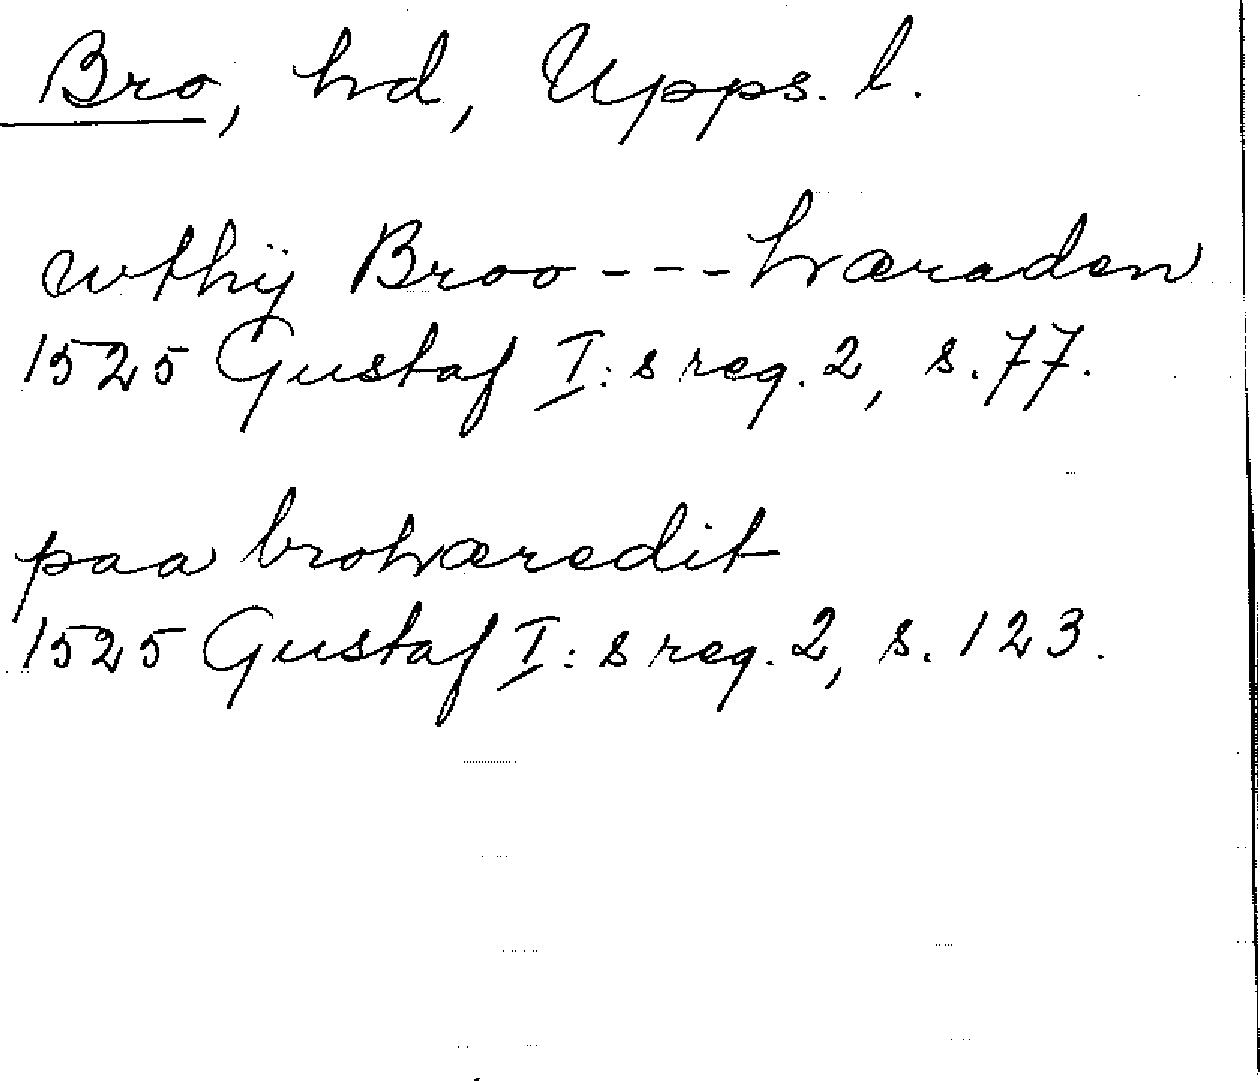 Bro, hd, Upps. l.
wthij Broo --- hæraden
1525 Gustaf I:s reg. 2, s. 77.
paa brohæredit
1525 Gustaf I:s reg. 2, s. 123.